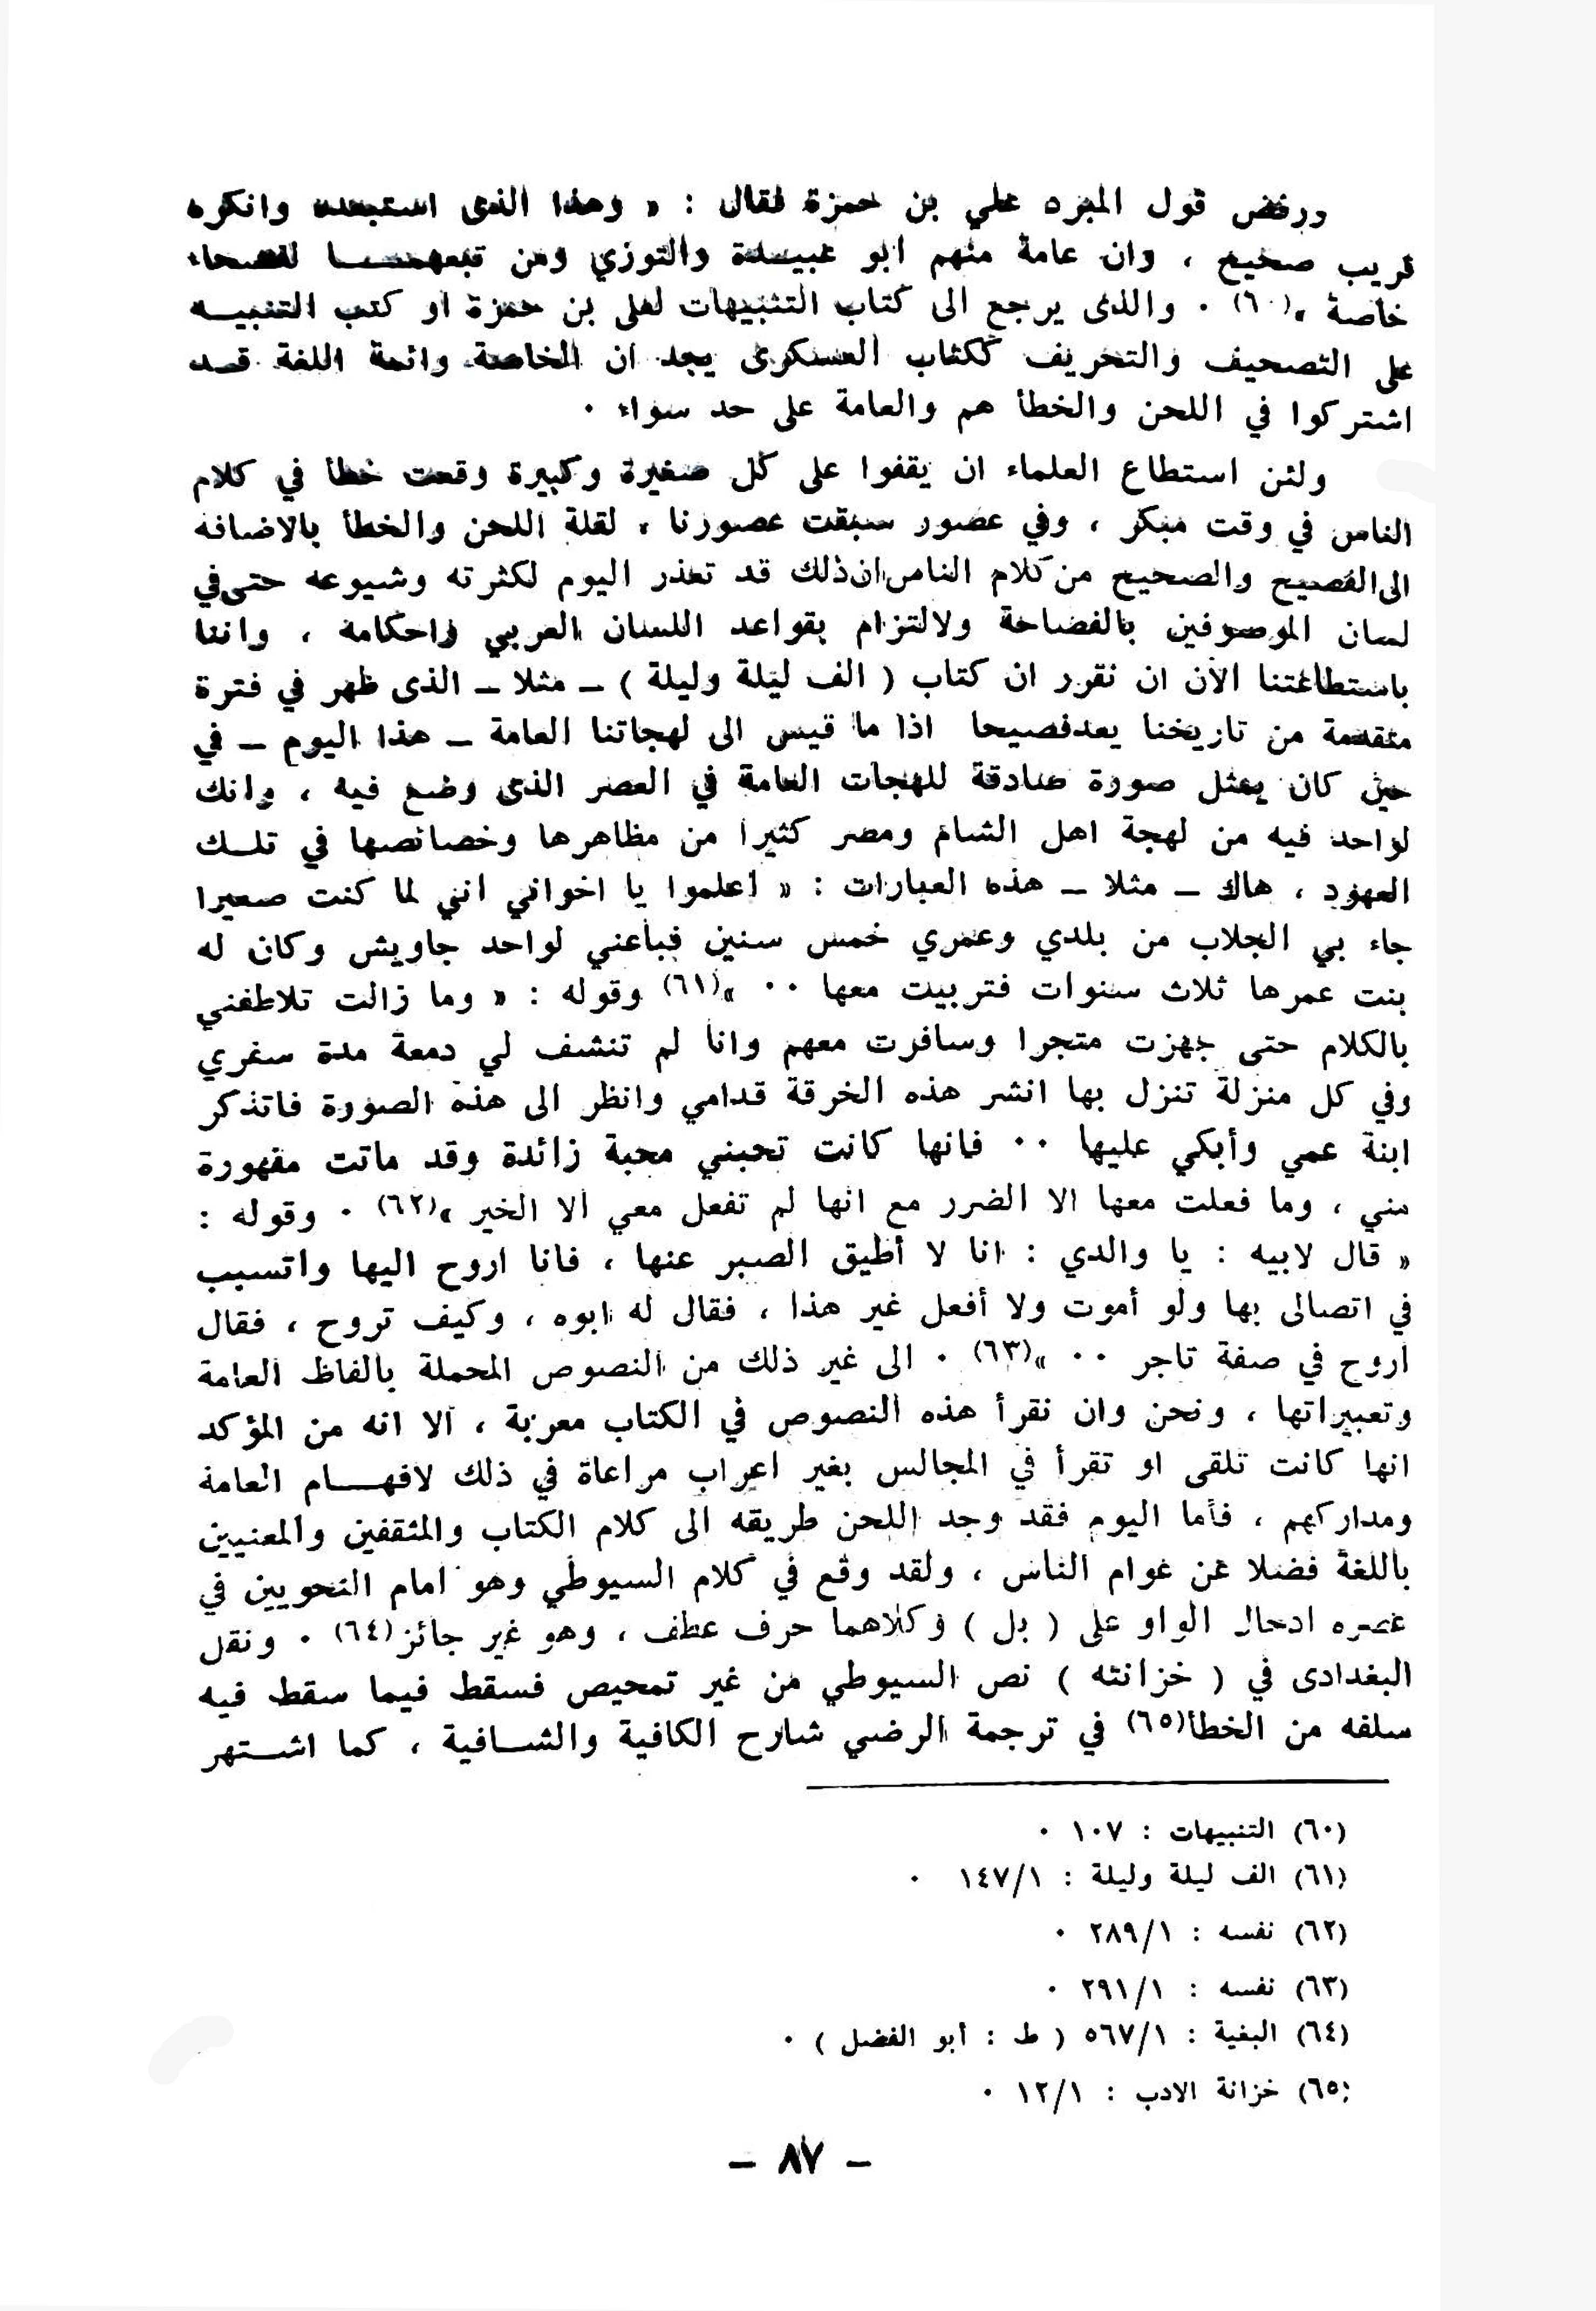 ورفض قول المبرد علي بن حمزة فقال : « وهذا الذى استبعده وانكره
قريب صحيح ، وان عامة منهم ابو عبيدة والتوزي ومن تبعهمــا لفصحاء
خاصة »(٦٠) ٠ والذى يرجع الى كتاب التنبيهات لعلى بن حمزة او كتب التنبيــه
على التصحيف والتحريف ككتاب العسكرى يجد ان الخاصة وائمة اللغة قــد
اشتركوا في اللحن والخطأ هم والعامة على حد سواء ٠
ولئن استطاع العلماء ان يقفوا على كل صغيرة وكبيرة وقعت خطأ في كلام
الناس في وقت مبكر ، وفي عصور سبقت عصورنا ، لقلة اللحن والخطأ بالاضافه
الى الفصيح والصحيح من كلام الناس ان ذلك قد تعذر اليوم لكثرته وشيوعه حتى في
لسان الموصوفين بالفصاحة ولالتزام بقواعد اللسان العربي واحكامه ، واننا
باستطاعتنا الآن ان نقرر ان كتاب ( الف ليلة وليلة ) ــ مثلا ــ الذى ظهر في فترة
متقدمة من تاريخنا يعد فصيحا اذا ما قيس الى لهجاتنا العامة ــ هذا اليوم ــ في
حين كان يمثل صورة صادقة للهجات العامة في العصر الذى وضع فيه ، وانك
لواجد فيه من لهجة اهل الشام ومصر كثيرا من مظاهرها وخصائصها في تلــك
العهود ، هاك ــ مثلا ــ هذه العبارات : « اعلموا يا اخواني انني لما كنت صغيرا
جاء بي الجلاب من بلدي وعمري خمس سنين فباعني لواحد جاويش وكان له
بنت عمرها ثلاث سنوات فتربيت معها ٠٠ »(٦١) وقوله : « وما زالت تلاطفني
بالكلام حتى جهزت متجرا وسافرت معهم وانا لم تنشف لي دمعة مدة سفري
وفي كل منزلة تنزل بها انشر هذه الخرقة قدامي وانظر الى هذه الصورة فاتذكر
ابنة عمي وأبكي عليها ٠٠ فانها كانت تحبني محبة زائدة وقد ماتت مقهورة
مني ، وما فعلت معها الا الضرر مع انها لم تفعل معي الا الخير »(٦٢) ٠ وقوله :
« قال لابيه : يا والدي : انا لا أطيق الصبر عنها ، فانا اروح اليها واتسبب
في اتصالى بها ولو أموت ولا أفعل غير هذا ، فقال له ابوه ، وكيف تروح ، فقال
اروح في صفة تاجر ٠٠ »(٦٣) ٠ الى غير ذلك من النصوص المحملة بالفاظ العامة
وتعبيراتها ، ونحن وان نقرأ هذه النصوص في الكتاب معربة ، الا انه من المؤكد
انها كانت تلقى او تقرأ في المجالس بغير اعراب مراعاة في ذلك لافهــام العامة
ومداركهم ، فأما اليوم فقد وجد اللحن طريقه الى كلام الكتاب والمثقفين والمعنيين
باللغة فضلا عن عوام الناس ، ولقد وقع في كلام السيوطي وهو امام النحويين في
عصره ادخال الواو على ( بل ) وكلاهما حرف عطف ، وهو غير جائز(٦٤) ٠ ونقل
البغدادى في ( خزانته ) نص السيوطي من غير تمحيص فسقط فيما سقط فيه
سلفه من الخطأ(٦٥) في ترجمة الرضي شارح الكافية والشــافية ، كما اشــتهر
(٦٠) التنبيهات : ١٠٧ ٠
(٦١) الف ليلة وليلة : ١٤٧/١ ٠
(٦٢) نفسه : ٢٨٩/١ ٠
(٦٣) نفسه : ٢٩١/١ ٠
(٦٤) البغية : ٥٦٧/١ ( ط : أبو الفضل ) ٠
(٦٥) خزانة الادب : ١٢/١ ٠
ــ ٨٧ ــ